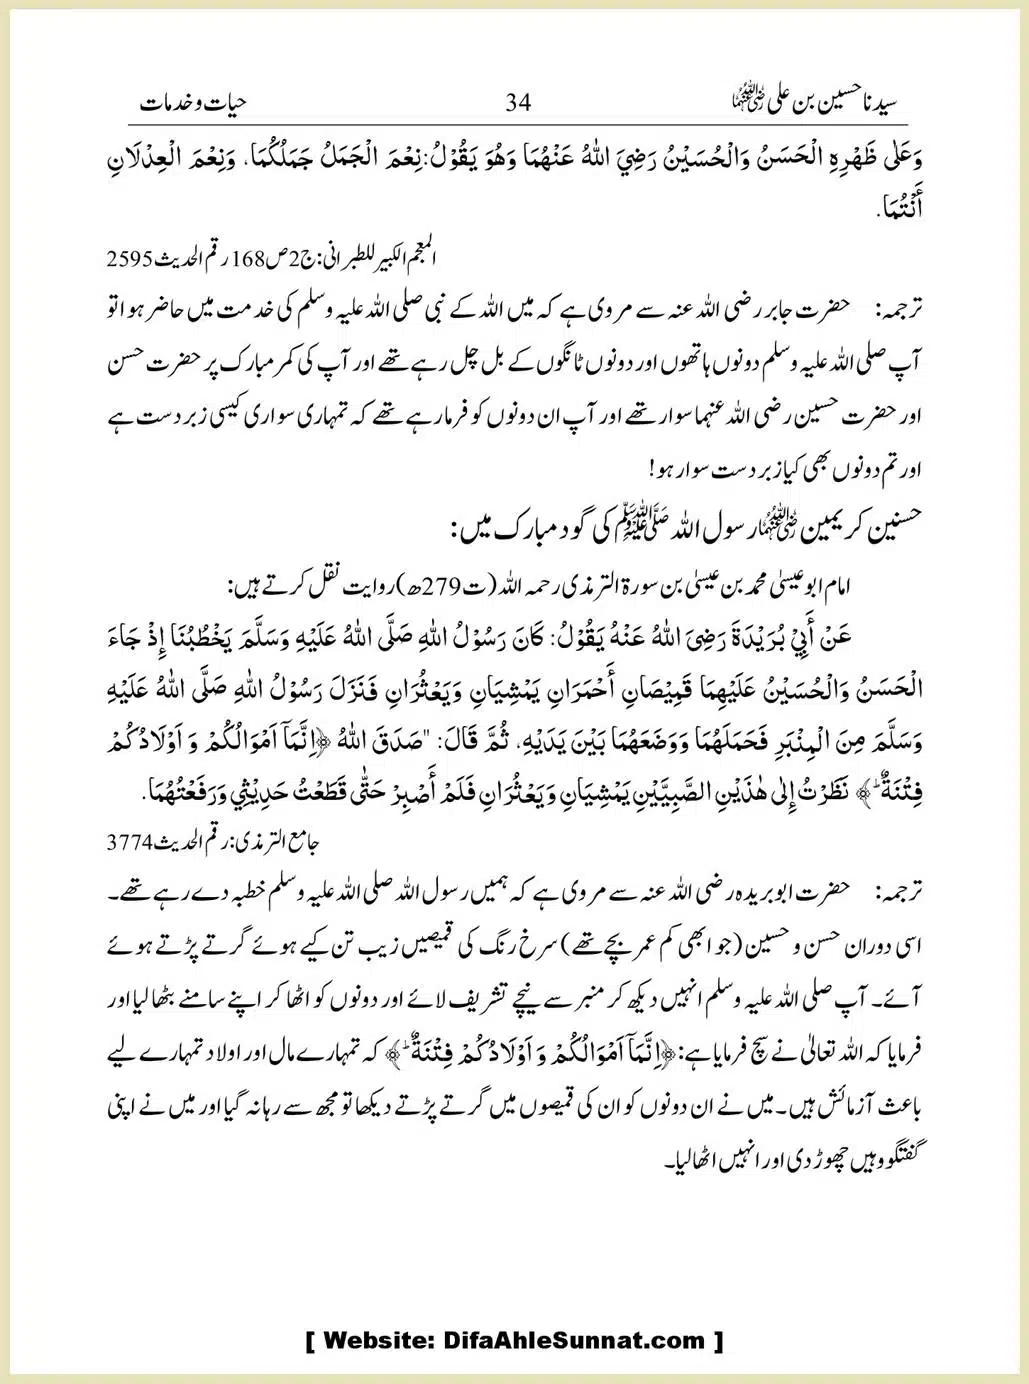 سیدنا حسین بن علی رضی اللہ عنہما 34 حیات و خدمات
وَعَلٰى ظَهْرِهِ الْحَسَنُ وَالْحُسَيْنُ رَضِيَ اللهُ عَنْهُمَا وَهُوَ يَقُوْلُ:نِعْمَ الْجَمَلُ جَمَلُكُمَا، وَنِعْمَ الْعِدْلَانِ
أَنْتُمَا.
المعجم الکبیر للطبرانی:ج2ص168رقم الحدیث2595
ترجمہ: حضرت جابر رضی اللہ عنہ سے مروی ہے کہ میں اللہ کے نبی صلی اللہ علیہ وسلم کی خدمت میں حاضر ہوا تو
آپ صلی اللہ علیہ وسلم دونوں ہاتھوں اور دونوں ٹانگوں کے بل چل رہے تھے اور آپ کی کمر مبارک پر حضرت حسن
اور حضرت حسین رضی اللہ عنہما سوار تھے اور آپ ان دونوں کو فرما رہے تھے کہ تمہاری سواری کیسی زبردست ہے
اور تم دونوں بھی کیا زبردست سوار ہو!
حسنین کریمین رضی اللہ عنہما رسول اللہ صلی اللہ علیہ وسلم کی گود مبارک میں:
امام ابو عیسیٰ محمد بن عیسیٰ بن سورۃ الترمذی رحمہ اللہ (ت279ھ)روایت نقل کرتے ہیں:
عَنْ أَبِيْ بُرَيْدَةَ رَضِيَ اللهُ عَنْهُ يَقُوْلُ: كَانَ رَسُوْلُ اللهِ صَلَّى اللهُ عَلَيْهِ وَسَلَّمَ يَخْطُبُنَا إِذْ جَاءَ
الْحَسَنُ وَالْحُسَيْنُ عَلَيْهِمَا قَمِيْصَانِ أَحْمَرَانِ يَمْشِيَانِ وَيَعْثُرَانِ فَنَزَلَ رَسُوْلُ اللهِ صَلَّى اللهُ عَلَيْهِ
وَسَلَّمَ مِنَ الْمِنْبَرِ فَحَمَلَهُمَا وَوَضَعَهُمَا بَيْنَ يَدَيْهِ، ثُمَّ قَالَ: "صَدَقَ اللهُ ﴿اِنَّمَآ اَمْوَالُكُمْ وَ اَوْلَادُكُمْ
فِتْنَةٌ ؕ﴾ نَظَرْتُ إِلٰى هٰذَيْنِ الصَّبِيَّيْنِ يَمْشِيَانِ وَيَعْثُرَانِ فَلَمْ أَصْبِرْ حَتّٰى قَطَعْتُ حَدِيْثِيْ وَرَفَعْتُهُمَا.
جامع الترمذی:رقم الحدیث3774
ترجمہ: حضرت ابو بریدہ رضی اللہ عنہ سے مروی ہے کہ ہمیں رسول اللہ صلی اللہ علیہ وسلم خطبہ دے رہے تھے۔
اسی دوران حسن و حسین (جو ابھی کم عمر بچے تھے) سرخ رنگ کی قمیصیں زیب تن کیے ہوئے گرتے پڑتے ہوئے
آئے۔ آپ صلی اللہ علیہ وسلم انہیں دیکھ کر منبر سے نیچے تشریف لائے اور دونوں کو اٹھا کر اپنے سامنے بٹھا لیا اور
فرمایا کہ اللہ تعالیٰ نے سچ فرمایا ہے:﴿اِنَّمَآ اَمْوَالُكُمْ وَ اَوْلَادُكُمْ فِتْنَةٌ ؕ﴾ کہ تمہارے مال اور اولاد تمہارے لیے
باعث آزمائش ہیں۔ میں نے ان دونوں کو ان کی قمیصوں میں گرتے پڑتے دیکھا تو مجھ سے رہا نہ گیا اور میں نے اپنی
گفتگو وہیں چھوڑ دی اور انہیں اٹھا لیا۔
[ Website: DifaAhleSunnat.com ]